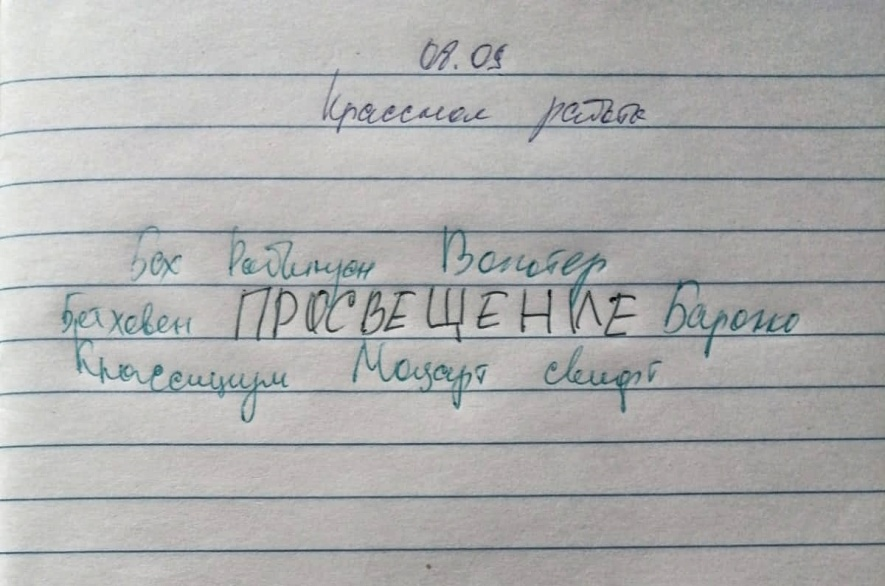 08.09
Классная работа
Бах Робинзон Вольтер
Бетховен ПРОСВЕЩЕНИЕ Барокко
Классицизм Моцарт свифт